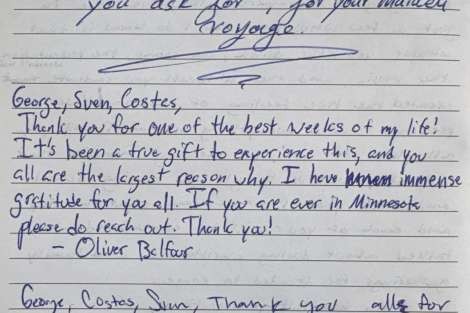 you ask for, for your maiden
voyage.
George, Sven, Costas,
Thank you for one of the best weeks of my life!
It's been a true gift to experience this, and you
all are the largest reason why. I have immense
gratitude for you all. If you are ever in Minnesota
please do reach out. Thank you!
- Oliver Balfour
George, Costas, Sven, Thank you alls for